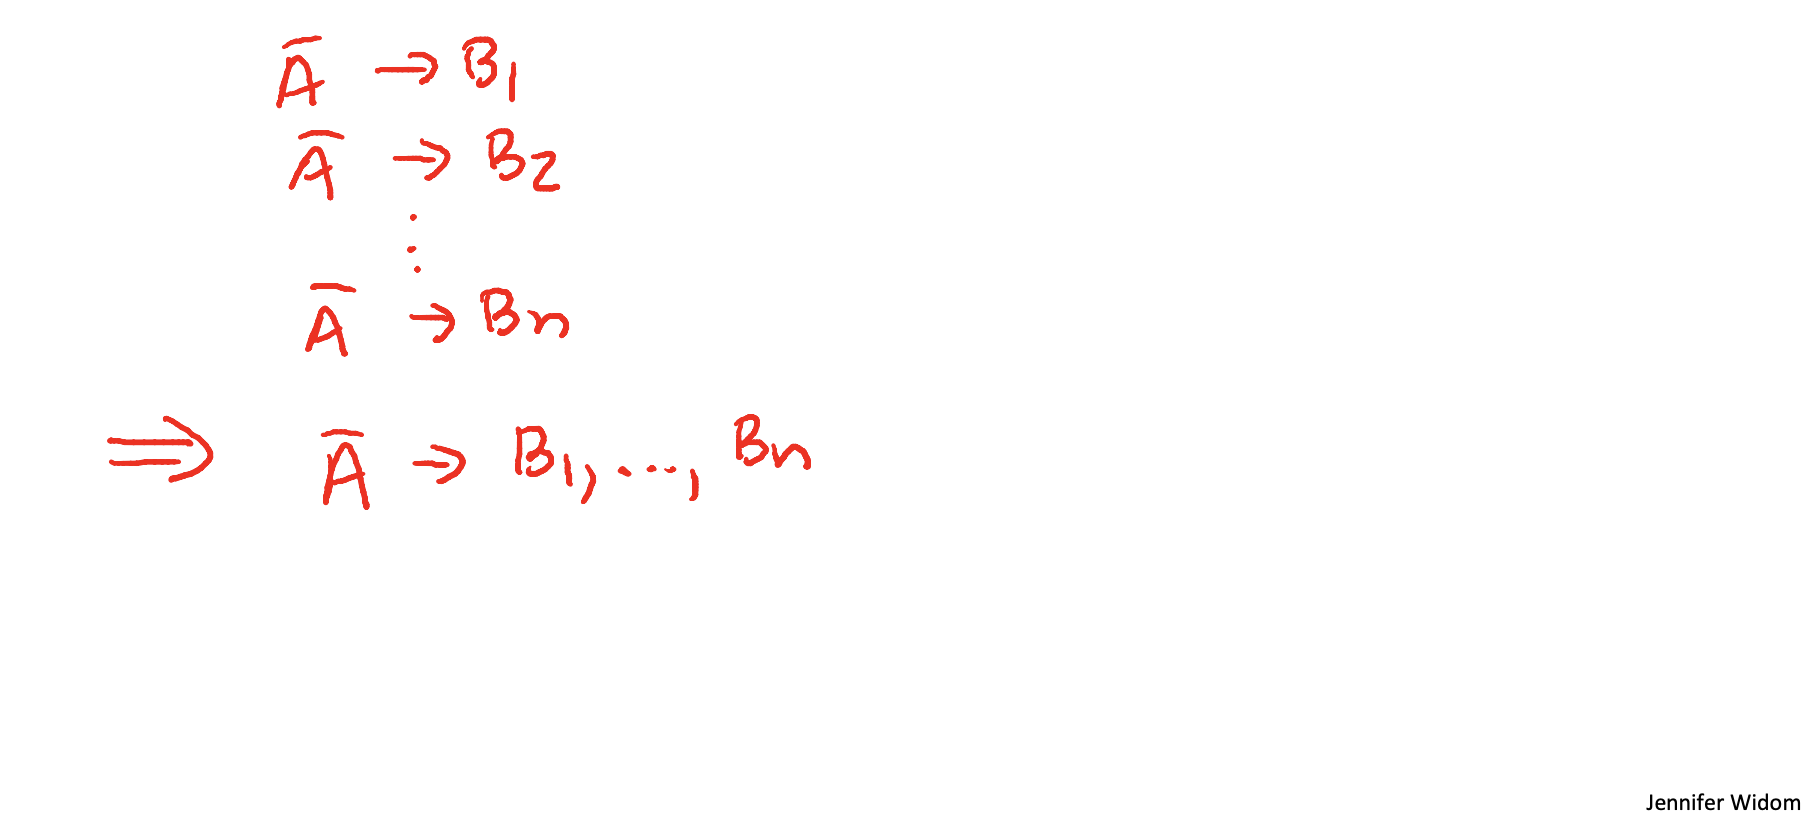 A̅ → B1
A̅ → B2
⋮
A̅ → Bn
⇒ A̅ → B1, ..., Bn
Jennifer Widom